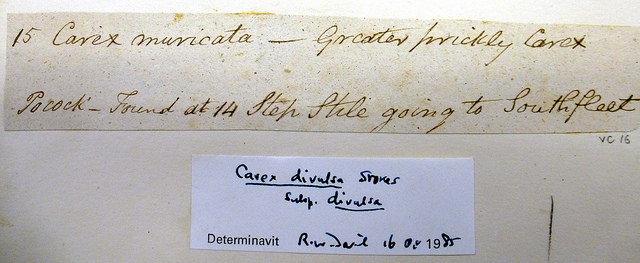 15 Carex muricata — Greater prickly Carex
Pocock — Found at 14 Step Stile going to Southfleet
VC 16
Carex divulsa Stokes
subsp. divulsa
Determinavit R.W. David 16 1985